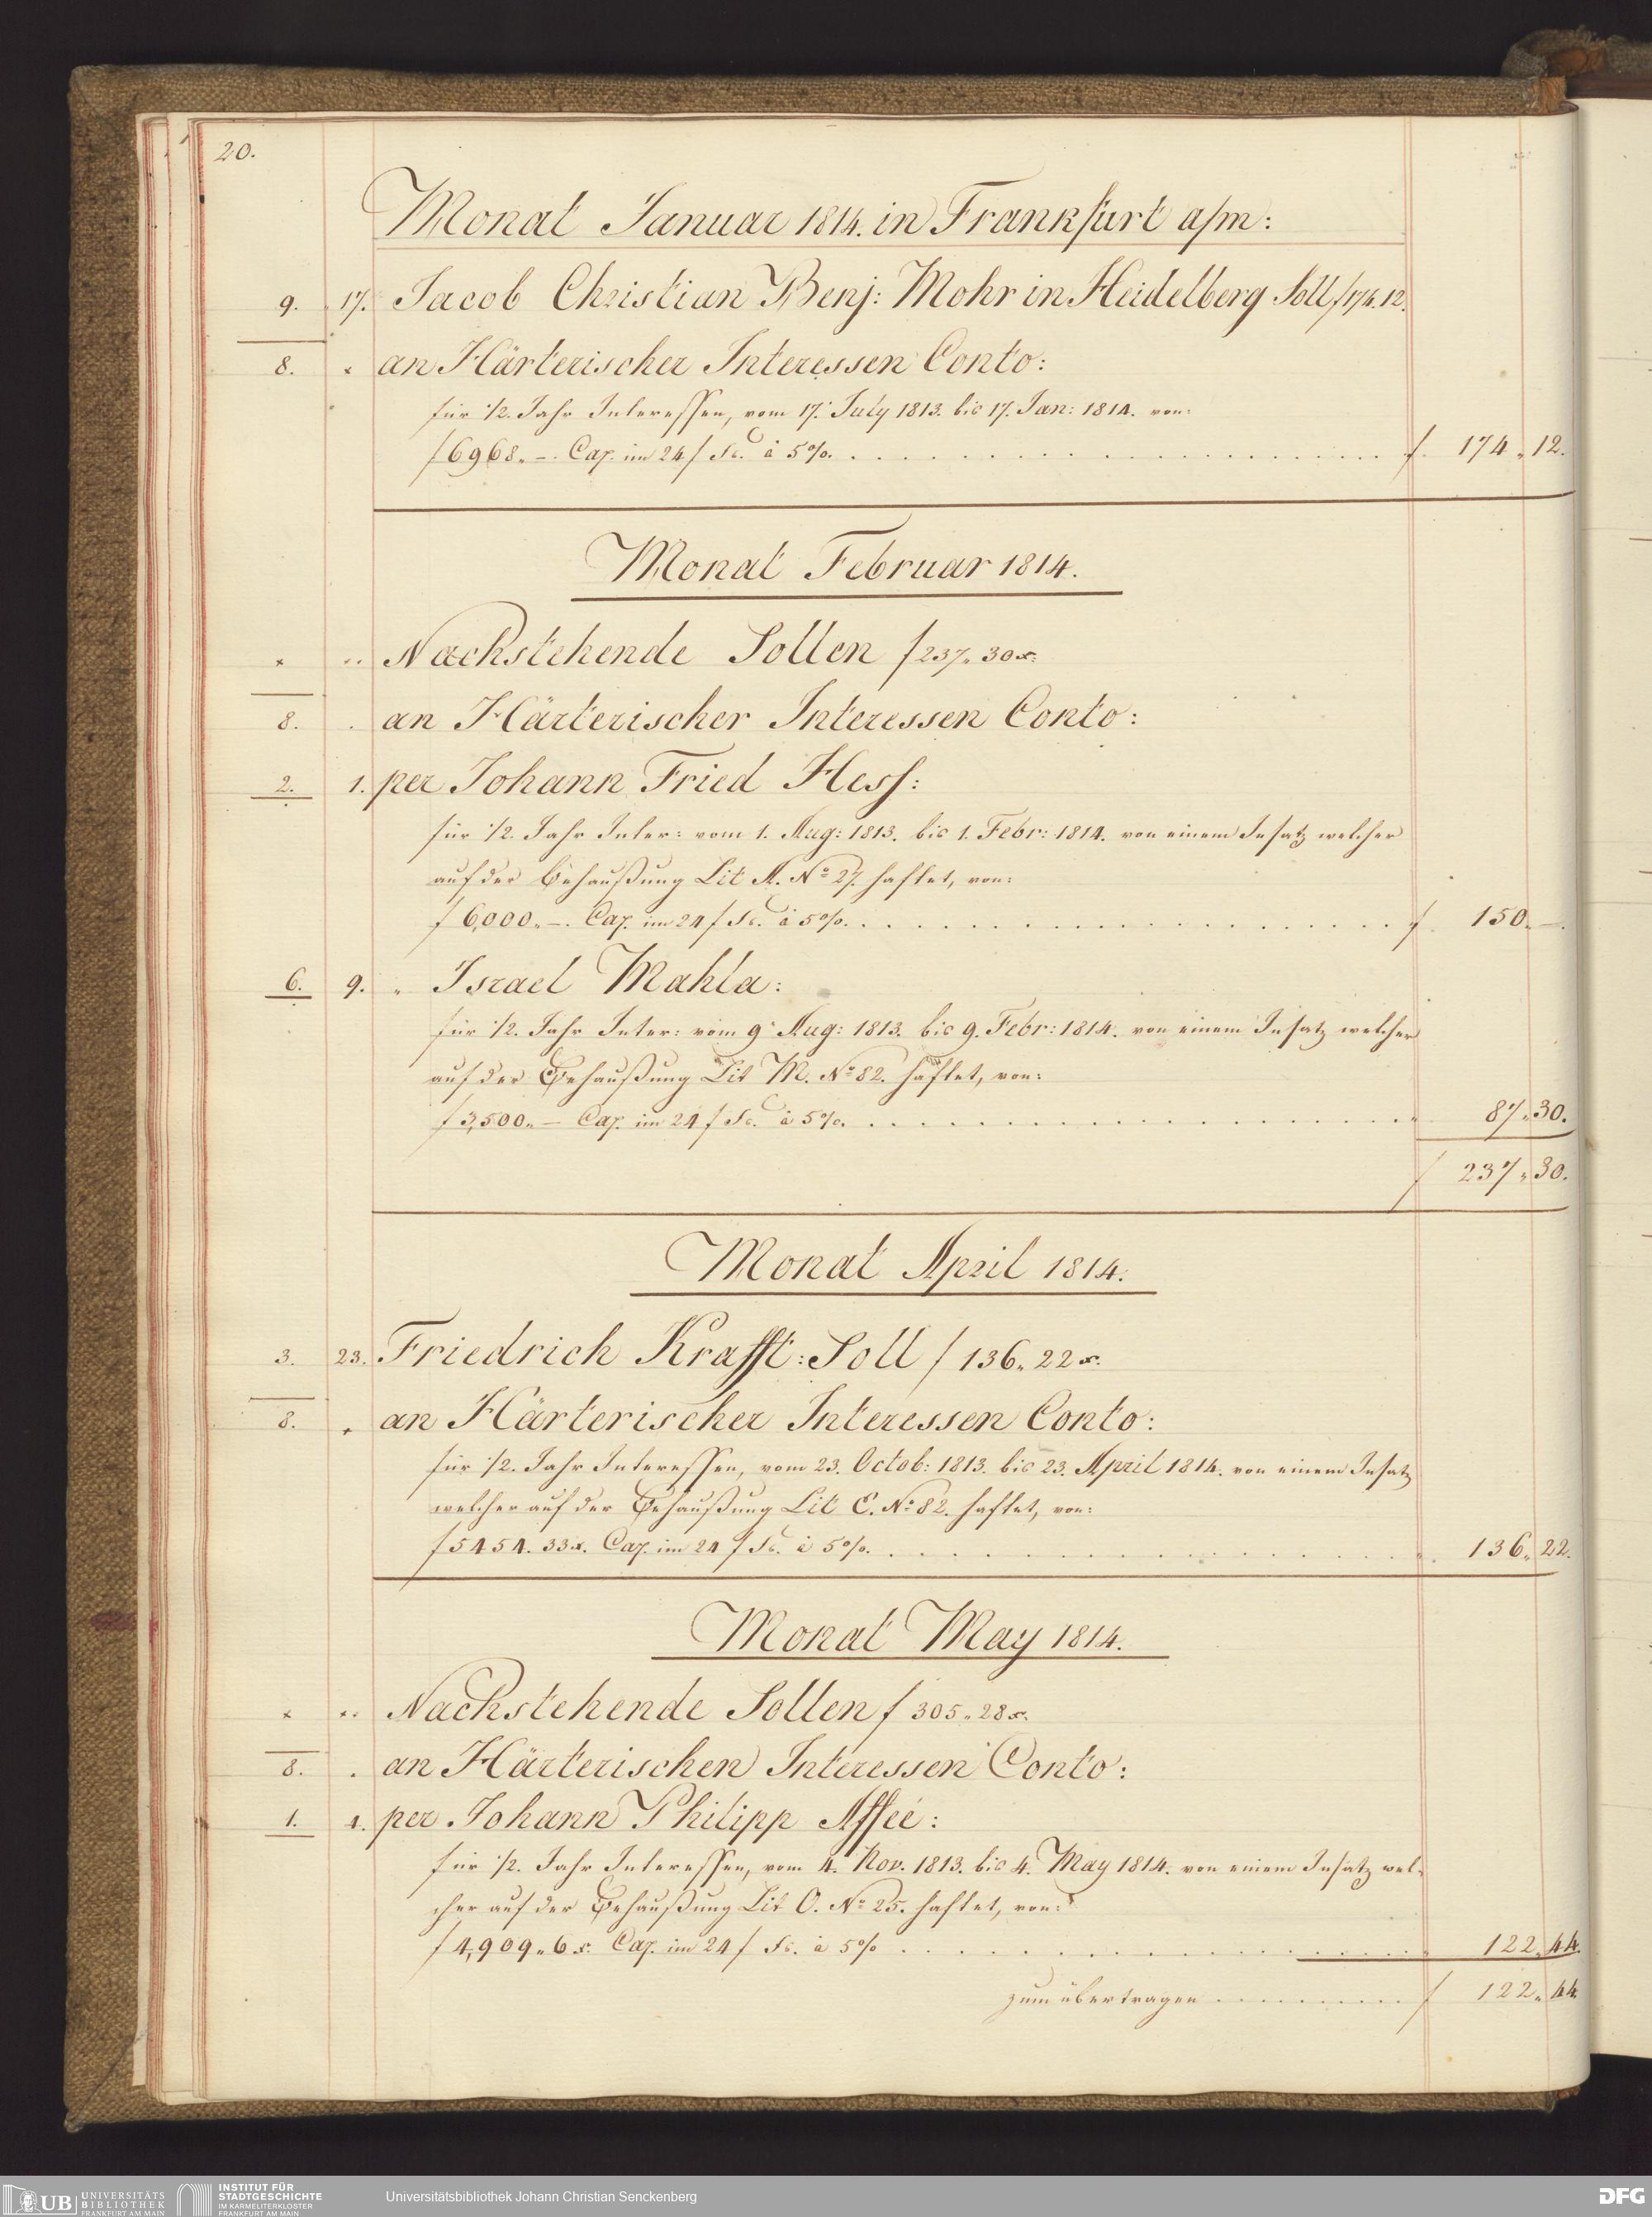 20.
Monat Januar 1814. in Frankfurt a/m:
9. 17. Jacob Christian Benj: Mohr in Heidelberg Soll f 174. 12.
8. " an Härterischer Interessen Conto:
für 1/2. Jahr Interessen, vom 17. July 1813. bis 17. Jan: 1814. von:
f 6968. –. Cap. im 24 f Fs. à 5%. f. 174 " 12.
Monat Februar 1814.
" " Nachstehende Sollen f 237 " 30 x.
8. . an Härterischer Interessen Conto:
2. 1. per Johann Fried Hess:
für 1/2. Jahr Inter: vom 1. Aug: 1813. bis 1. Febr: 1814. von einem Insatz welcher
auf der Behaußung Lit A. No 27. haftet, von:
f 6,000. –. Cap. im 24 f Fs. à 5%. f. 150. –.
6. 9. " Israel Mahla:
für 1/2. Jahr Inter: vom 9. Aug: 1813. bis 9. Febr: 1814. von einem Insatz welcher
auf der Behaußung Lit M. No 82. haftet, von:
f 3,500. – Cap. im 24 f Fs. à 5%. " 87 " 30.
f 237 " 30.
Monat April 1814.
3. 23. Friedrich Krafft: Soll f 136 " 22 x.
8. " an Härterischer Interessen Conto:
für 1/2. Jahr Interessen, vom 23. Octob: 1813. bis 23. April 1814. von einem Insatz
welcher auf der Behaußung Lit E. No 82. haftet, von:
f 5454. 33 x. Cap. im 24 f Fs. à 5%. " 136 " 22.
Monat May 1814.
" " Nachstehende Sollen f 305 " 28 x.
8. . an Härterischen Interessen Conto:
1. 4. per Johann Philipp Affée:
für 1/2. Jahr Interessen, vom 4. Nov. 1813. bis 4. May 1814. von einem Insatz wel-
cher auf der Behaußung Lit O. No 25. haftet, von:
f 4,909 " 6 x. Cap. im 24 f Fs. à 5% " 122 " 44.
zum übertragen f 122 " 44.
UB UNIVERSITÄTS
BIBLIOTHEK
FRANKFURT AM MAIN
INSTITUT FÜR
STADTGESCHICHTE
IM KARMELITERKLOSTER
FRANKFURT AM MAIN
Universitätsbibliothek Johann Christian Senckenberg
DFG